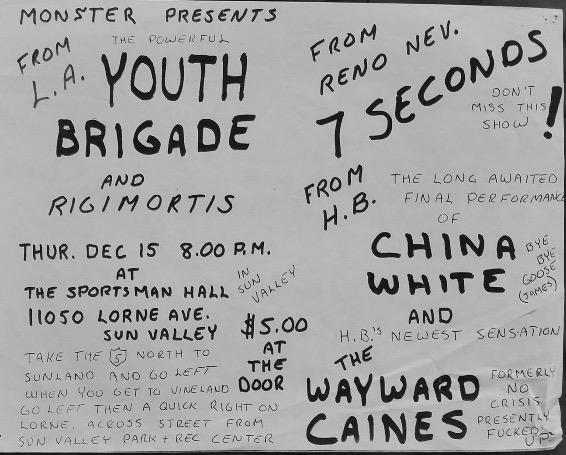 MONSTER PRESENTS
FROM
L.A.
THE POWERFUL
YOUTH
BRIGADE
AND
RIGIMORTIS
THUR. DEC 15 8.00 P.M.
AT
THE SPORTSMAN HALL
IN
SUN VALLEY
11050 LORNE AVE.
SUN VALLEY
$5.00
AT
THE
DOOR
TAKE THE 5 NORTH TO
SUNLAND AND GO LEFT
WHEN YOU GET TO VINELAND
GO LEFT THEN A QUICK RIGHT ON
LORNE. ACROSS STREET FROM
SUN VALLEY PARK + REC CENTER
FROM
RENO NEV.
7 SECONDS
DON'T
MISS THIS
SHOW !
FROM
H.B.
THE LONG AWAITED
FINAL PERFORMANCE
OF
CHINA
WHITE
BYE
BYE
GOOSE
(JAMES)
AND
H.B.'S NEWEST SENSATION
THE
WAYWARD
CAINES
FORMERLY
NO
CRISIS
PRESENTLY
FUCKED
UP